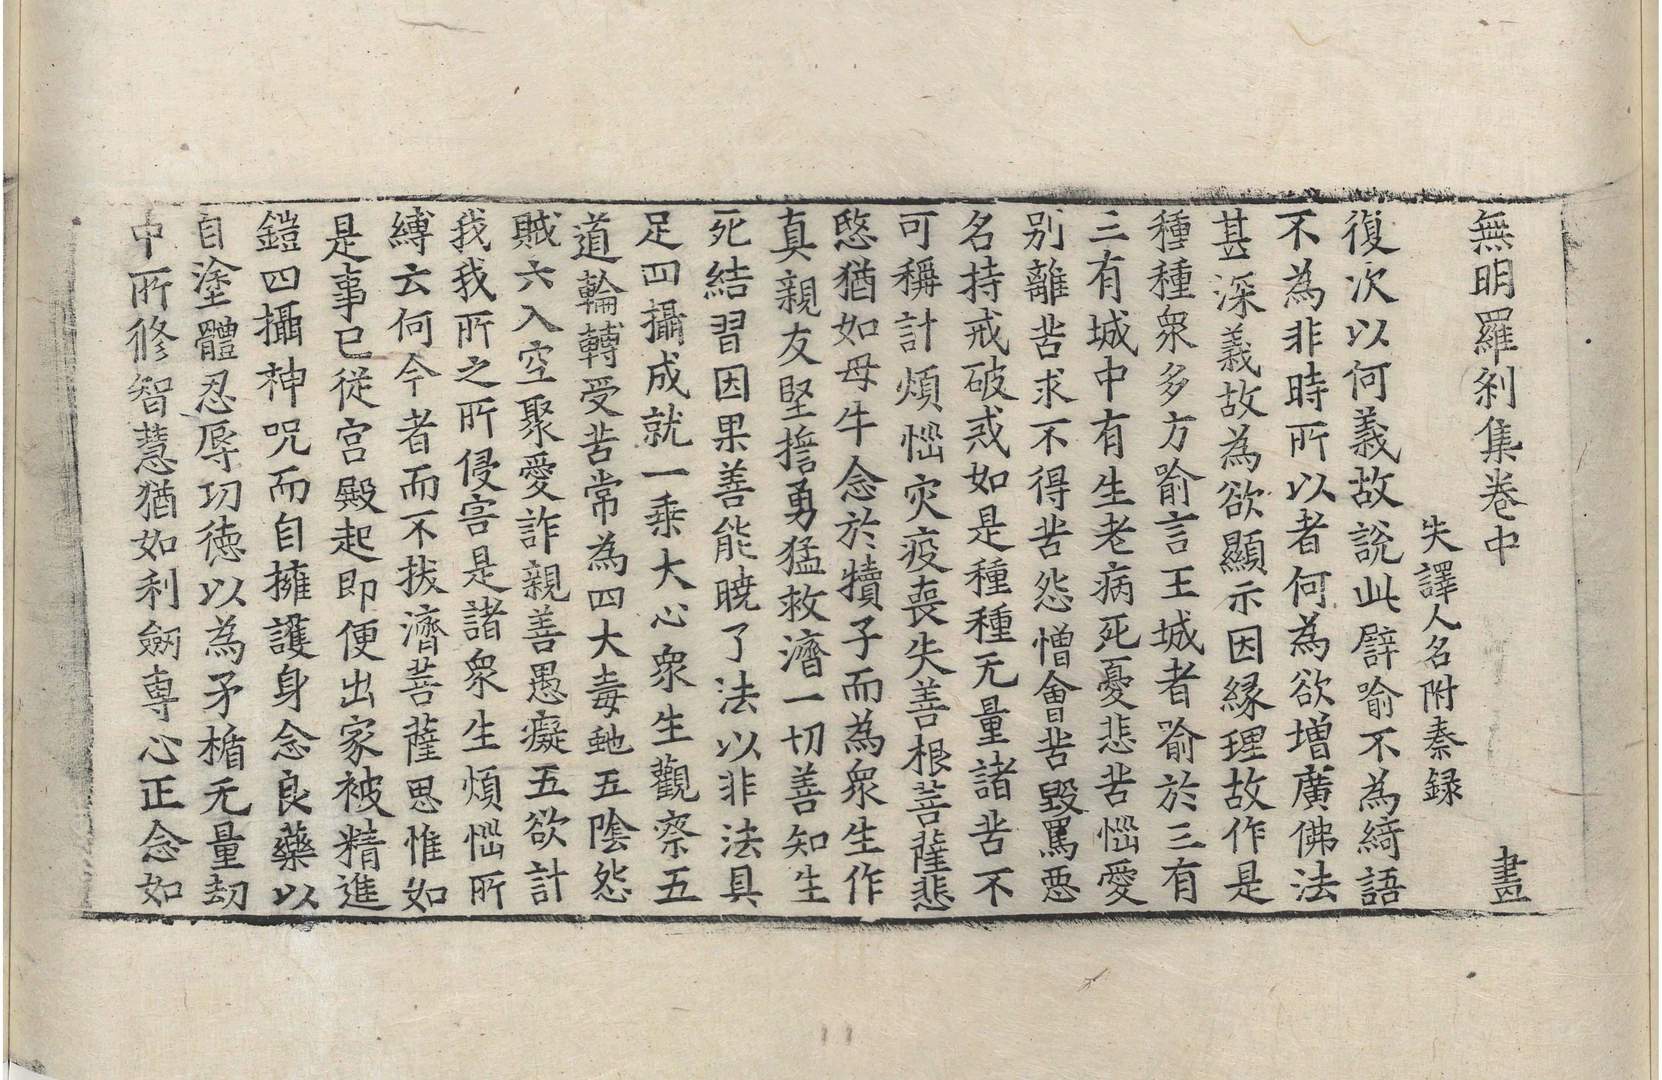 無明羅刹集卷中 畫
失譯人名附秦録
復次以何義故說此譬喻不為綺語
不為非時所以者何為欲增廣佛法
甚深義故為欲顯示因縁理故作是
種種衆多方喻言王城者喻於三有
三有城中有生老病死憂悲苦惱愛
别離苦求不得苦怨憎會苦毀罵惡
名持戒破戒如是種種无量諸苦不
可稱計煩惱灾疫喪失善根菩薩悲
愍猶如母牛念於犢子而為衆生作
真親友堅誓勇猛救濟一切善知生
死結習因果善能曉了法以非法具
足四攝成就一乗大心衆生觀察五
道輪轉受苦常為四大毒虵五隂怨
賊六入空聚愛詐親善愚癡五欲計
我我所之所侵害是諸衆生煩惱所
縛云何今者而不拔濟菩薩思惟如
是事已從宫殿起即便出家被精進
鎧四攝神呪而自擁護身念良藥以
自塗體忍辱功徳以為矛楯无量劫
中所修智慧猶如利劒專心正念如